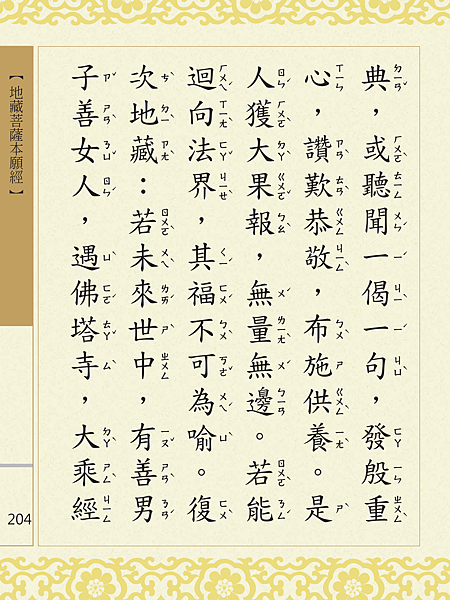 典，或聽聞一偈一句，發殷重
心，讚歎恭敬，布施供養。是
人獲大果報，無量無邊。若能
迴向法界，其福不可為喻。復
次地藏：若未來世中，有善男
子善女人，遇佛塔寺，大乘經
【地藏菩薩本願經】
204